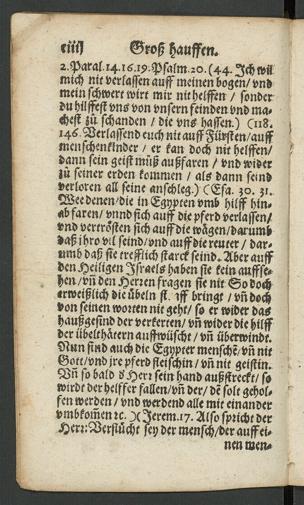 ciiij Groß hauffen.
2. Paral. 14. 16. 19. Psalm. 20. (44. Ich wil
mich nit verlassen auff meinen bogen/ vnd
mein schwert wirt mir nit helffen / sonder
du hilffest vns von vnsern feinden vnd ma-
chest zů schanden / die vns hassen.) (118.
146. Verlassend euch nit auff Fürsten/ auff
menschenkinder / er kan doch nit helffen/
dann sein geist můß außfaren / vnd wider
zů seiner erden kommen / als dann seind
verloren all seine anschleg.) (Esa. 30. 31.
Wee denen/ die in Egypten vmb hilff hin-
ab faren/ vnnd sich auff die pferd verlassen/
vnd vertrösten sich auff die wägen/ darumb
daß jhro vil seind/ vnd auff die reuter / dar-
umb daß sie trefflich starck seind. Aber auff
den Heiligen Israels haben sie kein auffse-
hen / vñ den Herren fragen sie nit So doch
er weißlich die übeln st. iff bringt / vñ doch
von seinen worten nit geht/ so er wider das
haußgesind der verkerten/ vñ wider die hilff
der übelthätern auffwüscht/ vñ überwindt.
Nun sind auch die Egypter menschẽ/ vñ nit
Gott/ vnd jre pferd fleischin/ vñ nit geistin.
Vñ so bald d Herr sein hand außstreckt/ so
wirdt der helffer fallen/ vñ der/ dẽ solt gehol-
fen werden / vnd werdend alle mit einander
vmbkom̃en ꝛc. )( Jerem. 17. Also spricht der
Herr: Verflůcht sey der mensch/ der auff ei-
nen men-